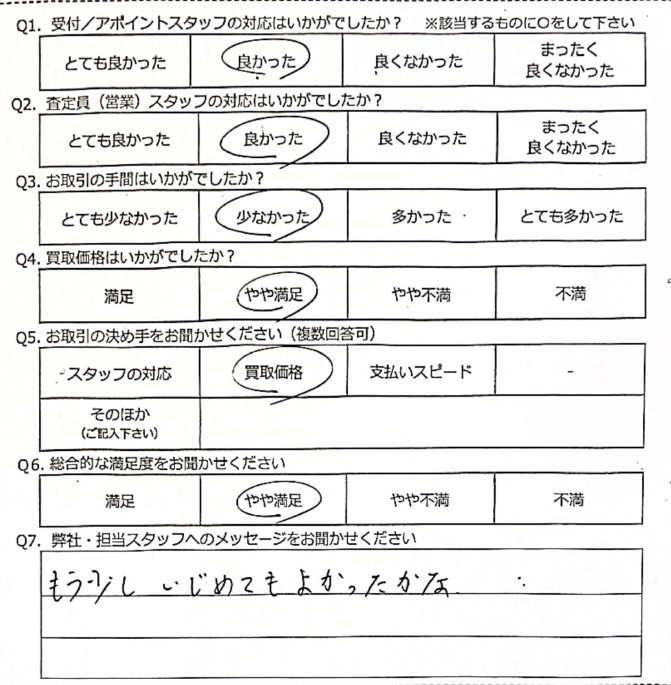 Q1. 受付／アポイントスタッフの対応はいかがでしたか？ ※該当するものに○をして下さい
とても良かった 良かった 良くなかった まったく良くなかった
Q2. 査定員（営業）スタッフの対応はいかがでしたか？
とても良かった 良かった 良くなかった まったく良くなかった
Q3. お取引の手間はいかがでしたか？
とても少なかった 少なかった 多かった とても多かった
Q4. 買取価格はいかがでしたか？
満足 やや満足 やや不満 不満
Q5. お取引の決め手をお聞かせください（複数回答可）
スタッフの対応 買取価格 支払いスピード -
そのほか
（ご記入下さい）
Q6. 総合的な満足度をお聞かせください
満足 やや満足 やや不満 不満
Q7. 弊社・担当スタッフへのメッセージをお聞かせください
もう少し いじめてもよかったかな